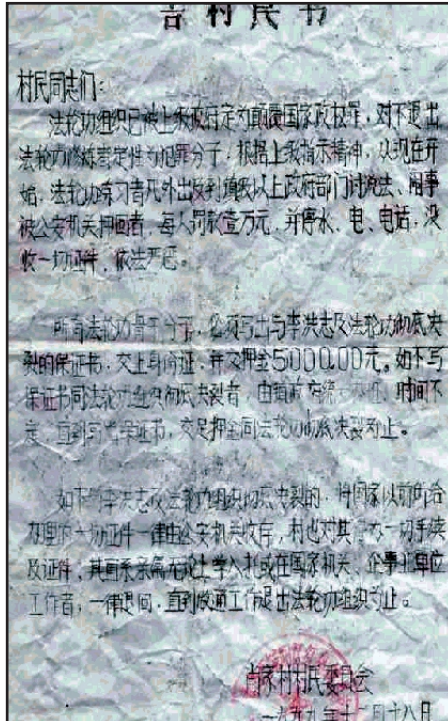 告村民书
村民同志们:
法轮功组织已被上级政府定为颠覆国家政权罪,对不退出
法轮功修炼者定性为犯罪分子,根据上级指示精神,从现在开
始,法轮功练习者凡外出及到镇级以上政府部门讨说法、闹事
被公安机关押回者,每人罚款壹万元,并停水、电、电话,没
收一切证件,依法严惩。
所有法轮功骨干分子,必须写出与李洪志及法轮功彻底决
裂的保证书,交上身份证,并交押金5000.00元。如不写
保证书同法轮功组织彻底决裂者,由镇政府统一办班,时间不
定,直到写出保证书,交足押金同法轮功彻底决裂为止。
如不同李洪志及法轮功组织彻底决裂的,将国家以前所给
办理的一切证件一律由公安机关收存,村也对其停办一切手续
及证件,其直系亲属无论上学入托或在国家机关、企事业单位
工作者,一律退回,直到做通工作退出法轮功组织为止。
村村民委员会
一九九年十二月十八日